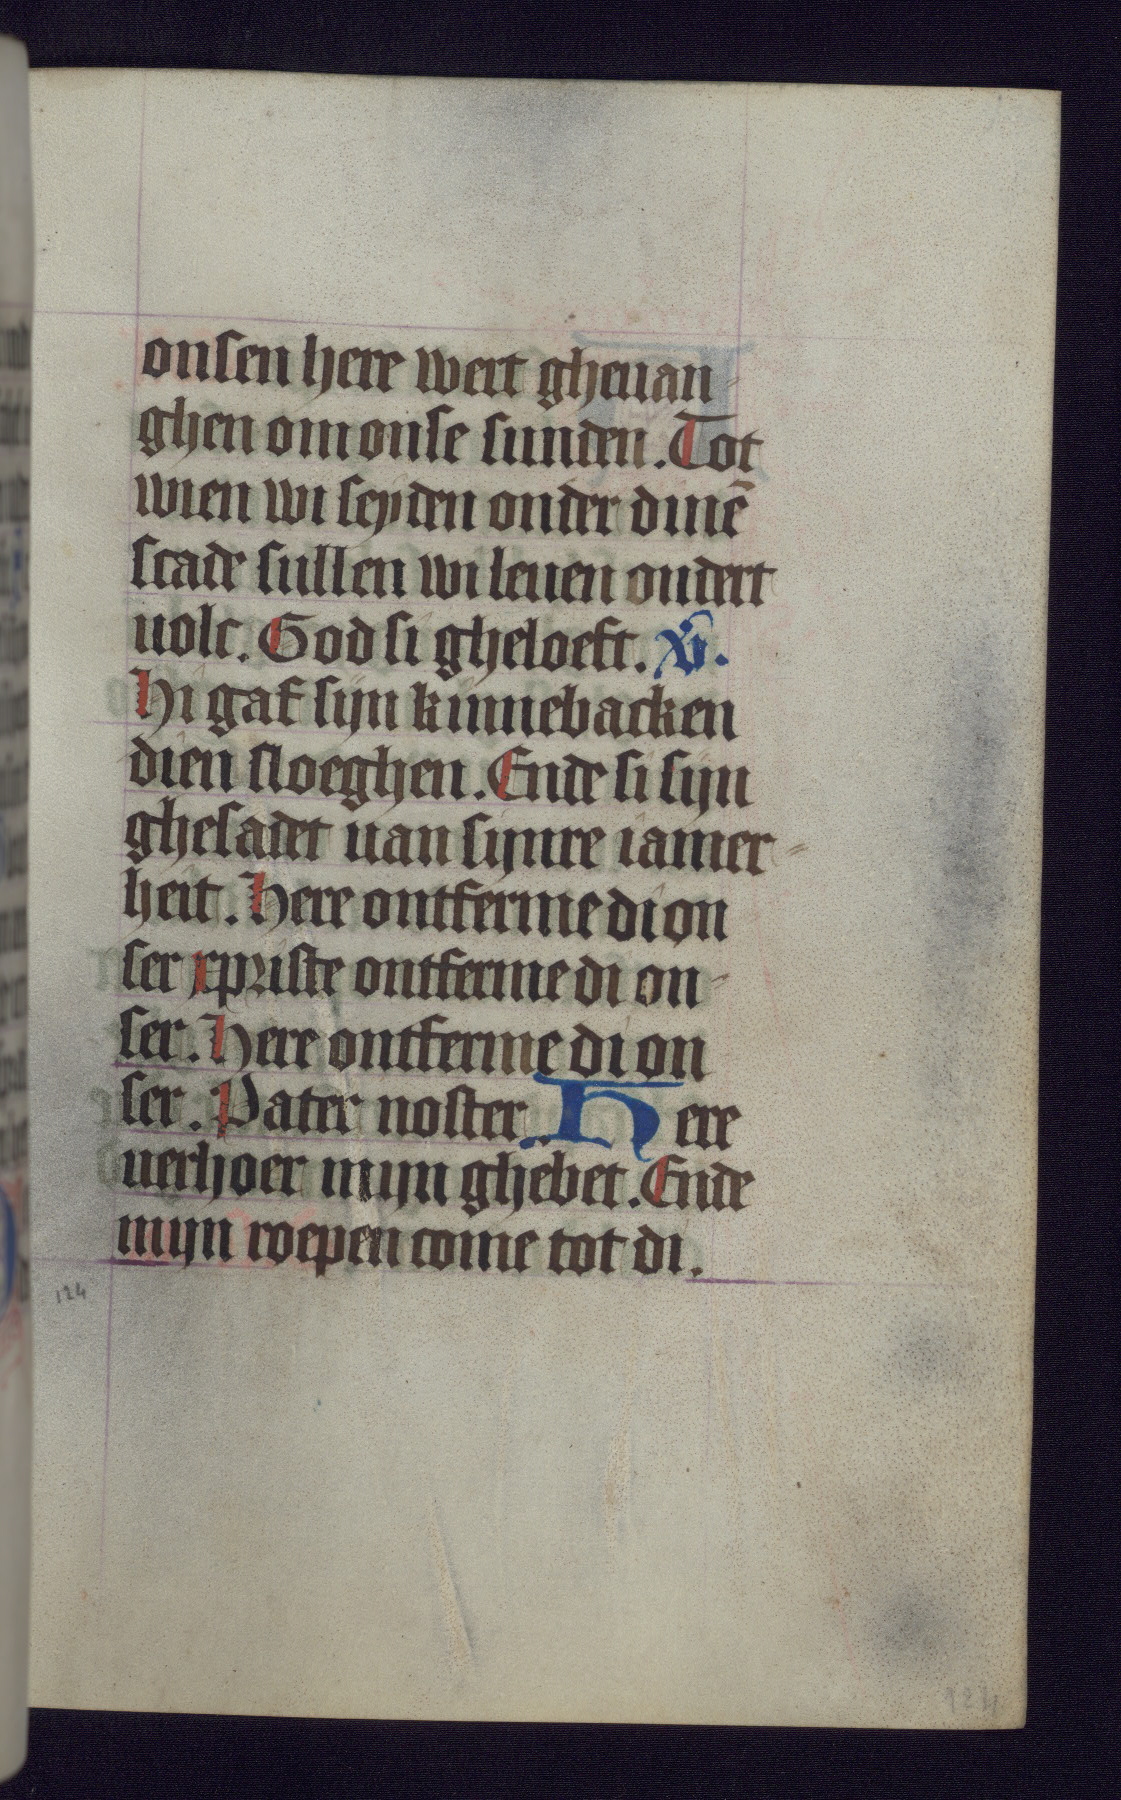 onsen here wert gheuan-
ghen om onse sunden. Tot
wien wi seyden onder dinē
scade sullen wi leuen ondert
uolc. God si gheloeft. xv̄.
Hi gaf sijn kinnebacken
dien sloeghen. Ende si sijn
ghesadet uan sijnre iamer-
heit. Here ontferme di on
ser xpriste ontferme di on-
ser. Here ontferme di on
ser. Pater noster. Here
uerhoer mijn ghebet. Ende
mijn roepen come tot di.
124
124